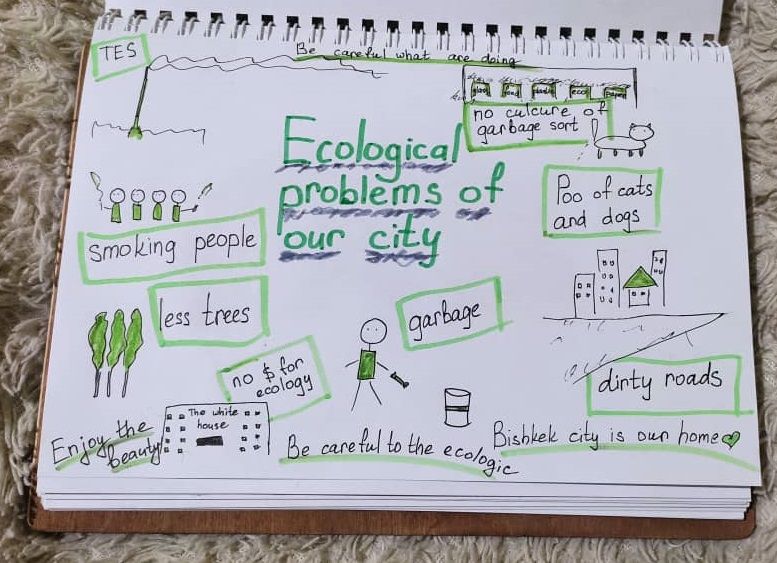 TES
Be careful what are doing
glass food plastic eco paper
no culcure of
garbage sort
Ecological
problems of
our city
Poo of cats
and dogs
smoking people
less trees
garbage
no $ for
ecology
dirty roads
The white
house
Enjoy the
beauty
Be careful to the ecologic
Bishkek city is our home